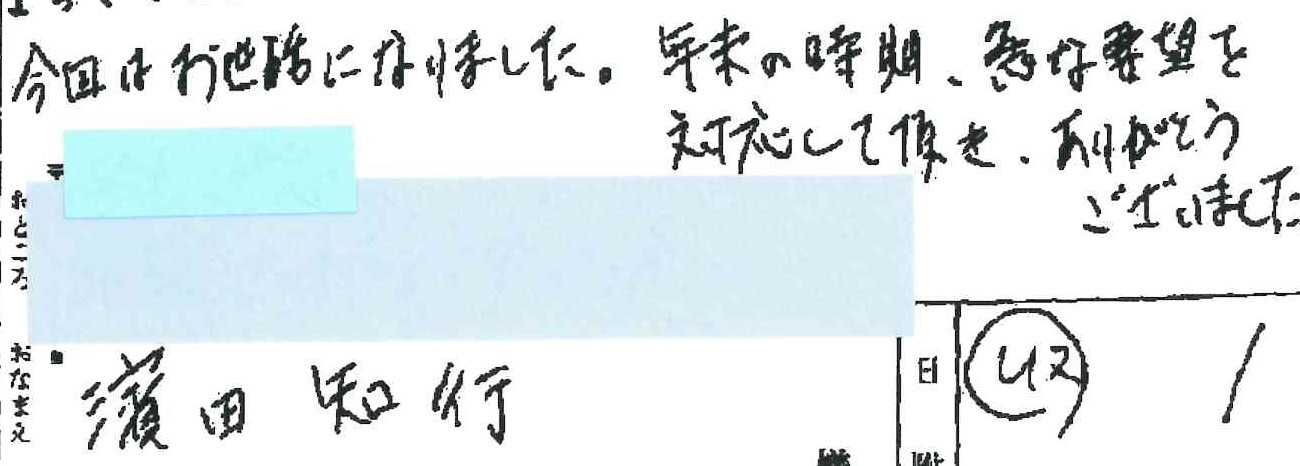 今回はお世話になりました。 年末の時期、急な要望を
対応して頂き、ありがとう
ございました
〒
おところ
おなまえ
濱田 知行
印
収